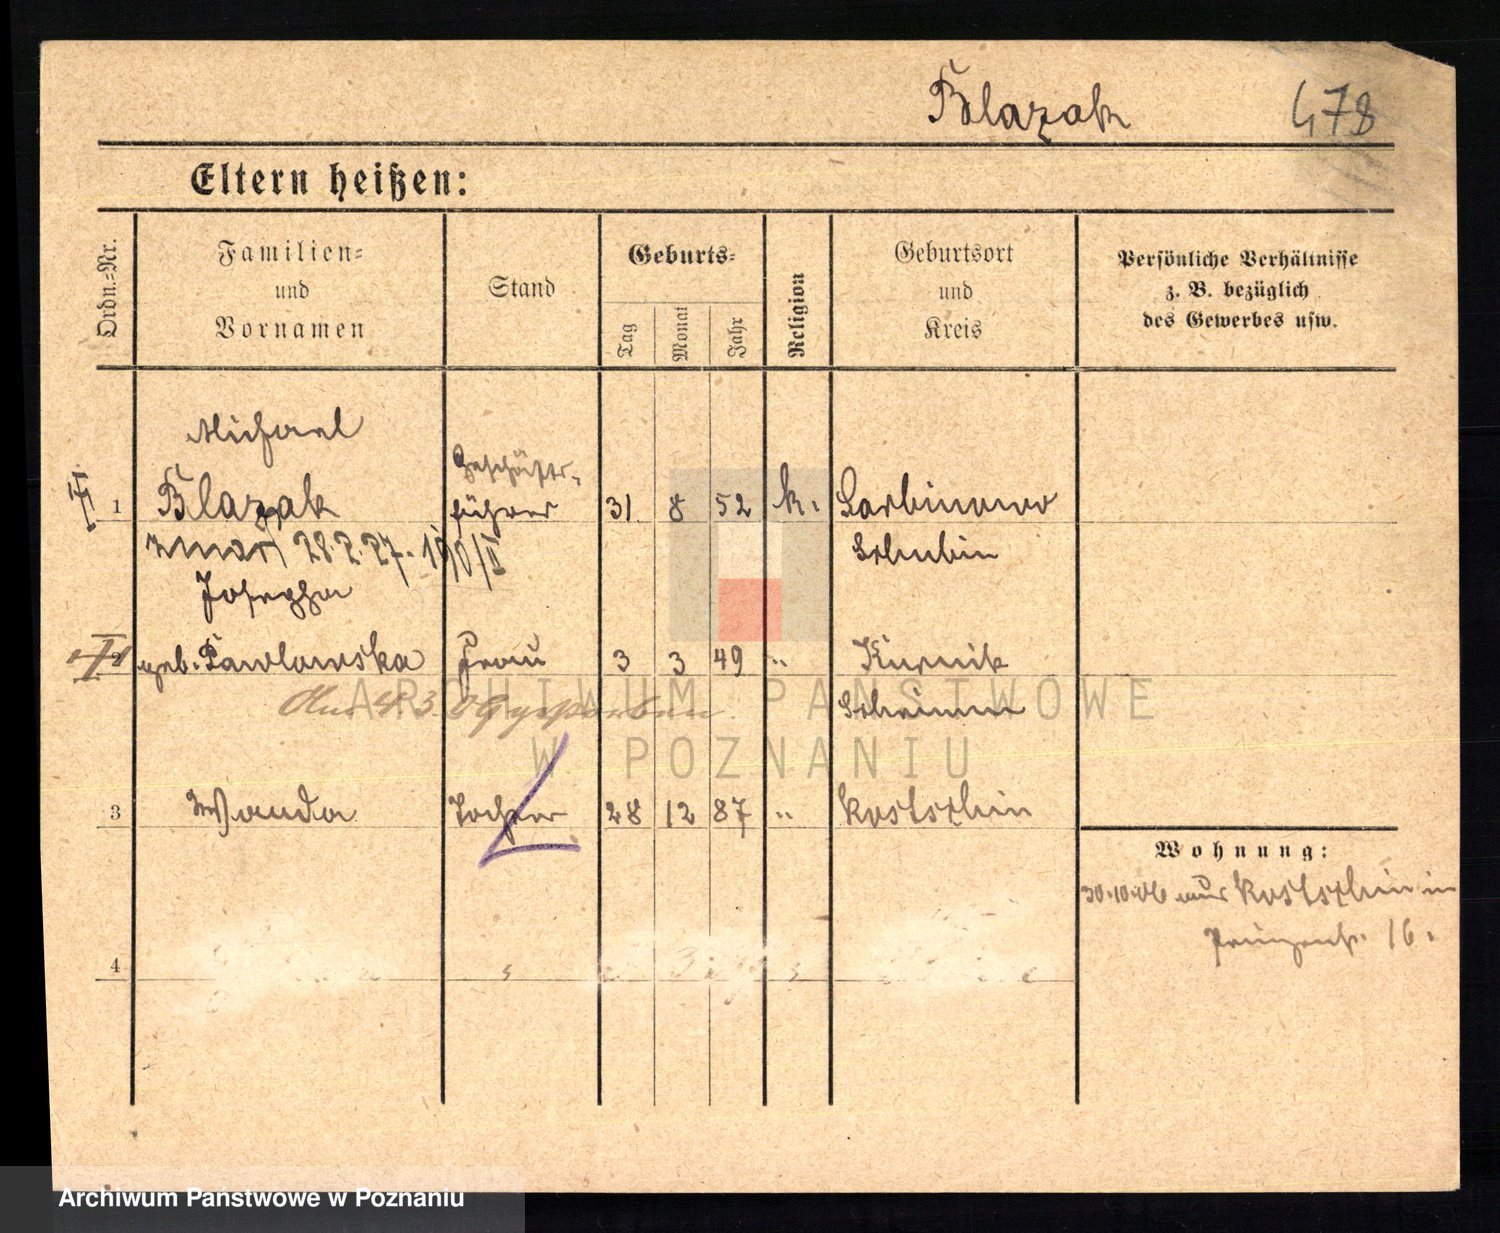 Blazak 478
Eltern heißen:
Ordn.-Nr.
Familien-
und
Vornamen
Stand
Geburts-
Tag
Monat
Jahr
Religion
Geburtsort
und
Kreis
Persönliche Verhältnisse
z. B. bezüglich
des Gewerbes usw.
Michael
Geschäfts-
1 Blazak führer 31 8 52 k. Sarbinowo
zmarł 28.2.27. 190/II Schubin
Josepha
2 geb. Pawlowska Frau 3 3 49 " Kurnik
Schrimm
3 Wanda Tochter 28 12 87 " Kostschin
Wohnung:
30.10.06 aus Kostschin in
16.
4
ARCHIWUM PAŃSTWOWE
W POZNANIU
Archiwum Państwowe w Poznaniu